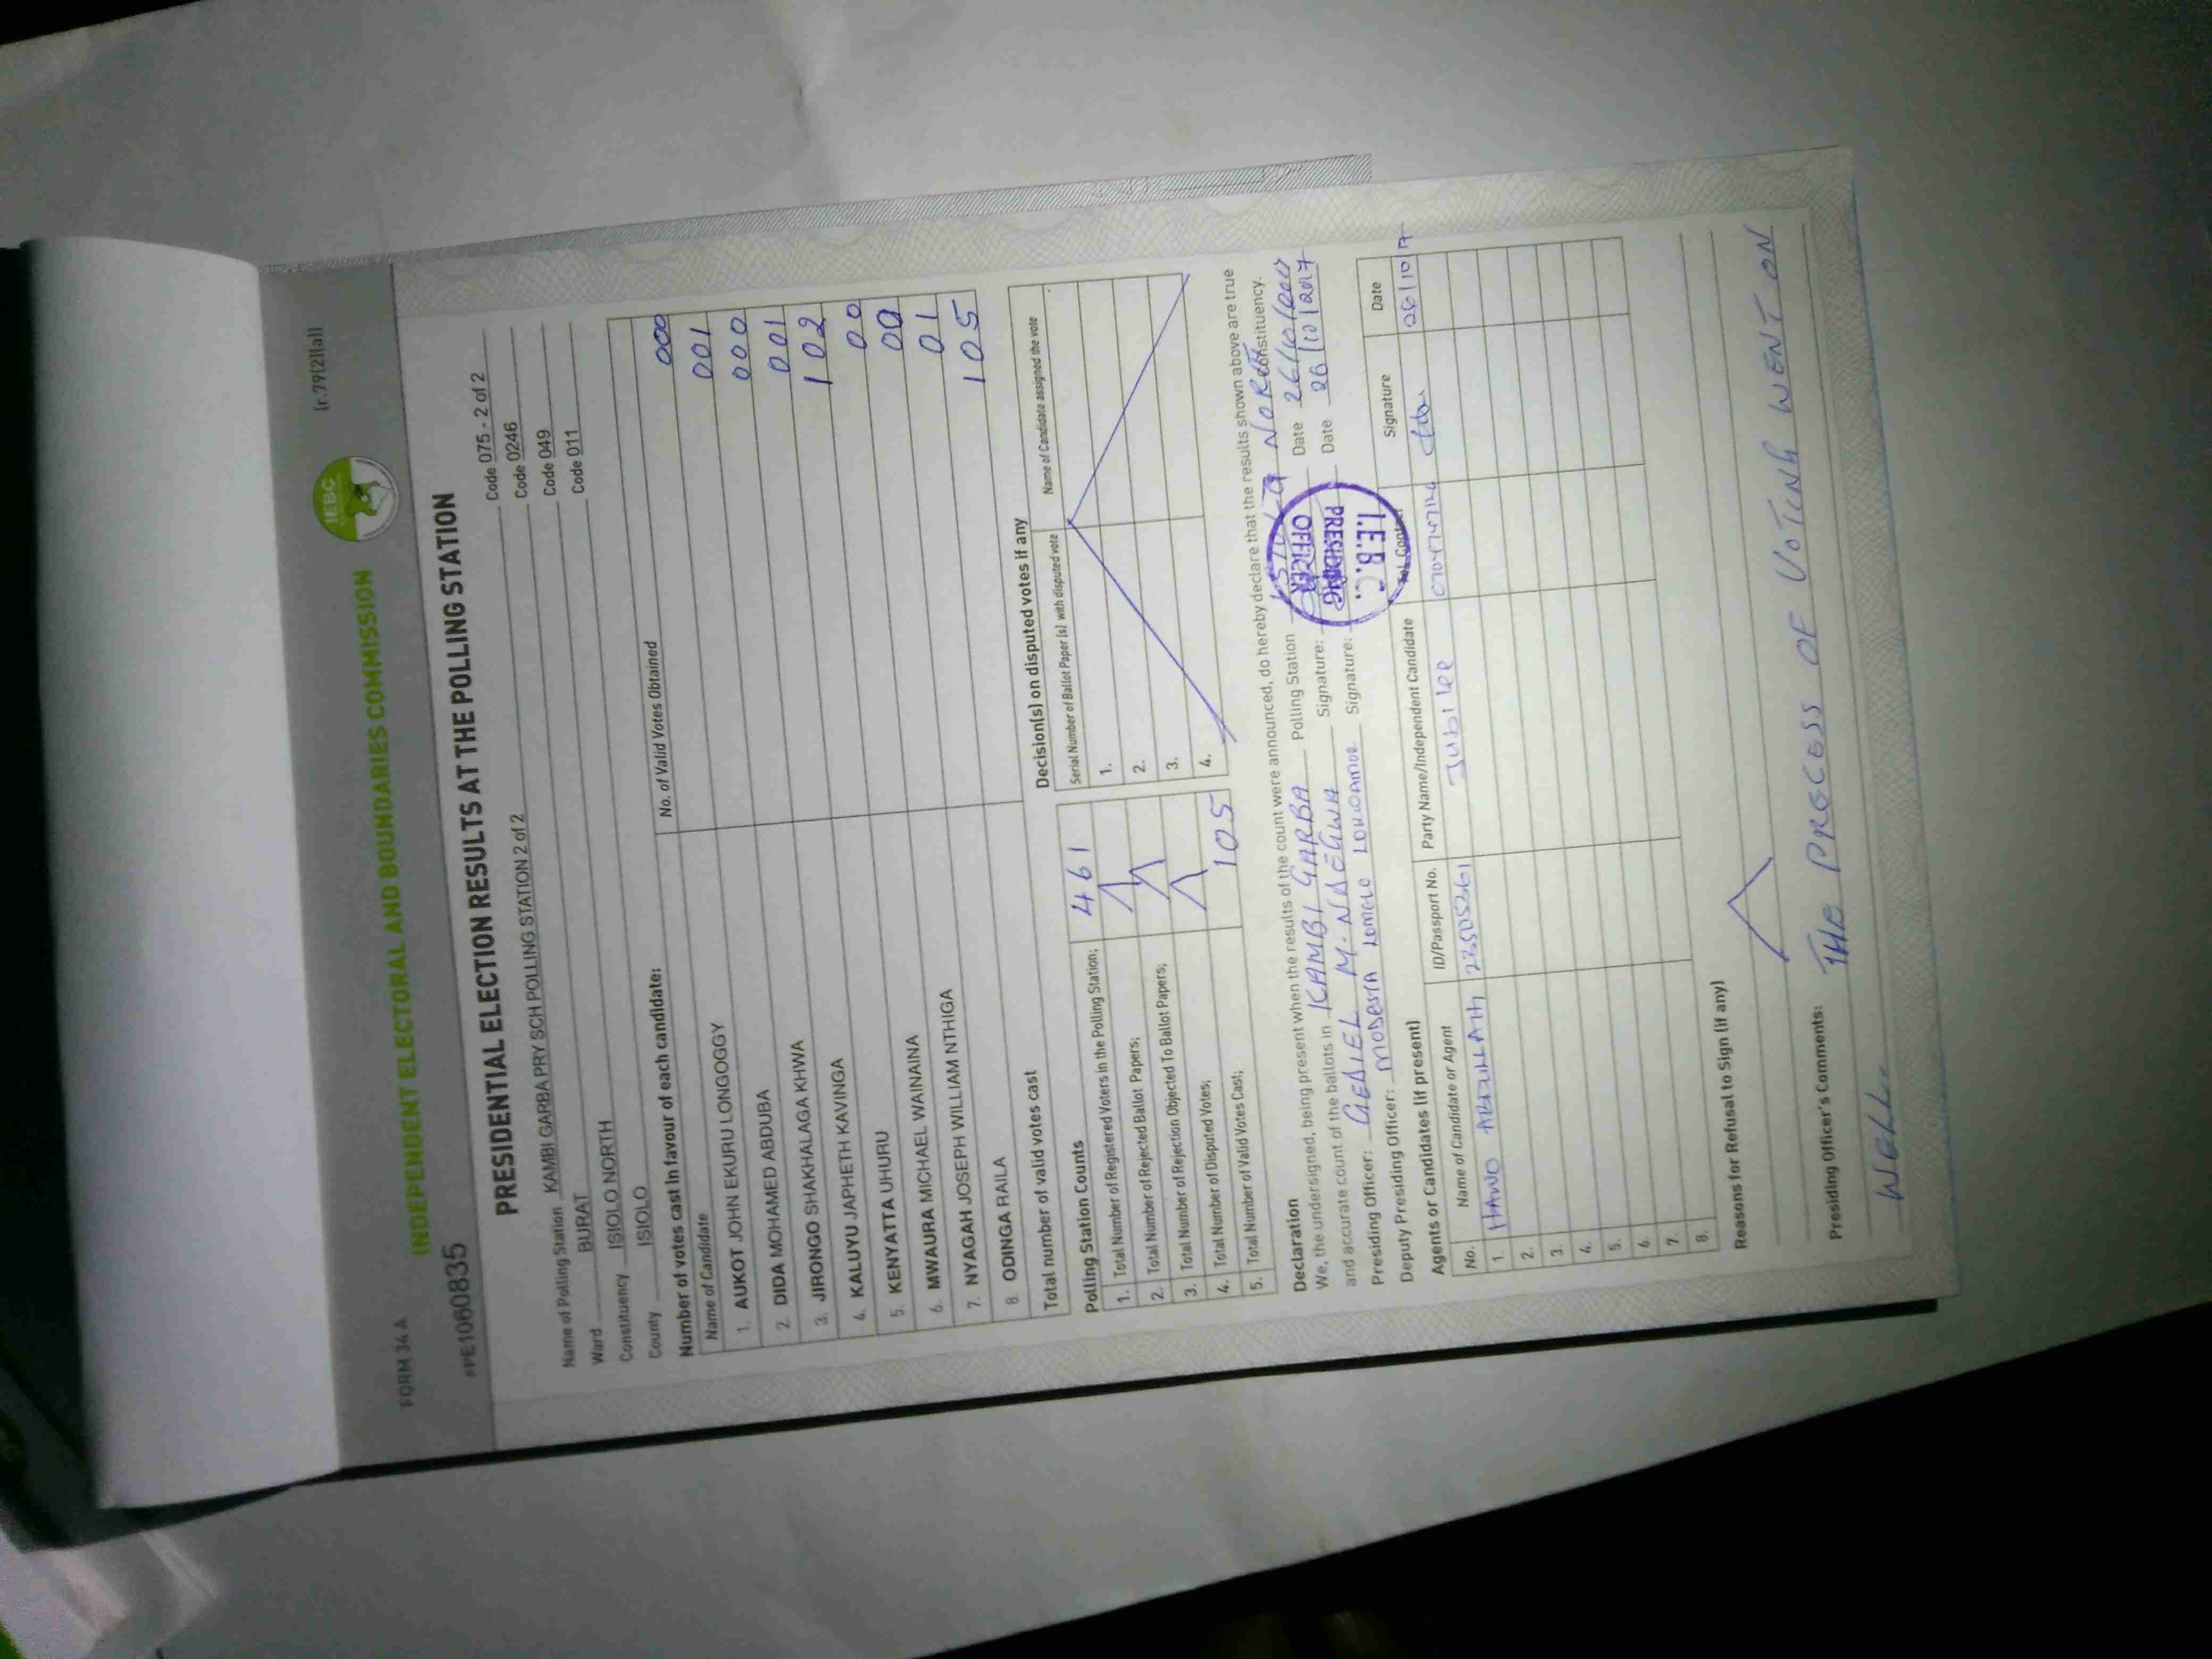 FORM 34 A
[r.79(2)(a)]
INDEPENDENT ELECTORAL AND BOUNDARIES COMMISSION
IEBC
PRESIDENTIAL ELECTION RESULTS AT THE POLLING STATION
Name of Polling Station KAMBI GARBA PRY SCH POLLING STATION 2 of 2 Code 075 - 2 of 2
Ward BURAT Code 0246
Constituency ISIOLO NORTH Code 049
County ISIOLO Code 011
Number of votes cast in favour of each candidate:
Name of Candidate No. of Valid Votes Obtained
1. AUKOT JOHN EKURU LONGOGGY 000
2. DIDA MOHAMED ABDUBA 001
3. JIRONGO SHAKHALAGA KHWA 000
4. KALUYU JAPHETH KAVINGA 001
5. KENYATTA UHURU 102
6. MWAURA MICHAEL WAINAINA 00
7. NYAGAH JOSEPH WILLIAM NTHIGA 00
8. ODINGA RAILA 01
Total number of valid votes cast 105
Polling Station Counts
1. Total Number of Registered Voters in the Polling Station; 461
2. Total Number of Rejected Ballot Papers;
3. Total Number of Rejection Objected To Ballot Papers;
4. Total Number of Disputed Votes;
5. Total Number of Valid Votes Cast; 105
Decision(s) on disputed votes if any
Serial Number of Ballot Paper (s) with disputed vote Name of Candidate assigned the vote
1.
2.
3.
4.
Declaration
We, the undersigned, being present when the results of the count were announced, do hereby declare that the results shown above are true
and accurate count of the ballots in KAMBI GARBA Polling Station ISIOLO NORTH Constituency.
Presiding Officer: GEDIEL M. Signature: Date 26/10/2017
Deputy Presiding Officer: MODESTA LOMELO Signature: Date 26/10/2017
I.E.B.C.
PRESIDING
OFFICER
Agents or Candidates (if present)
No. Name of Candidate or Agent ID/Passport No. Party Name/Independent Candidate Tel. Contact Signature Date
1. HAWO ABDULLAHI 23505261 Jubilee 26/10/17
2.
3.
4.
5.
6.
7.
8.
Reasons for Refusal to Sign (if any)
Presiding Officer's Comments: THE PROCESS OF VOTING WENT ON
WELL.